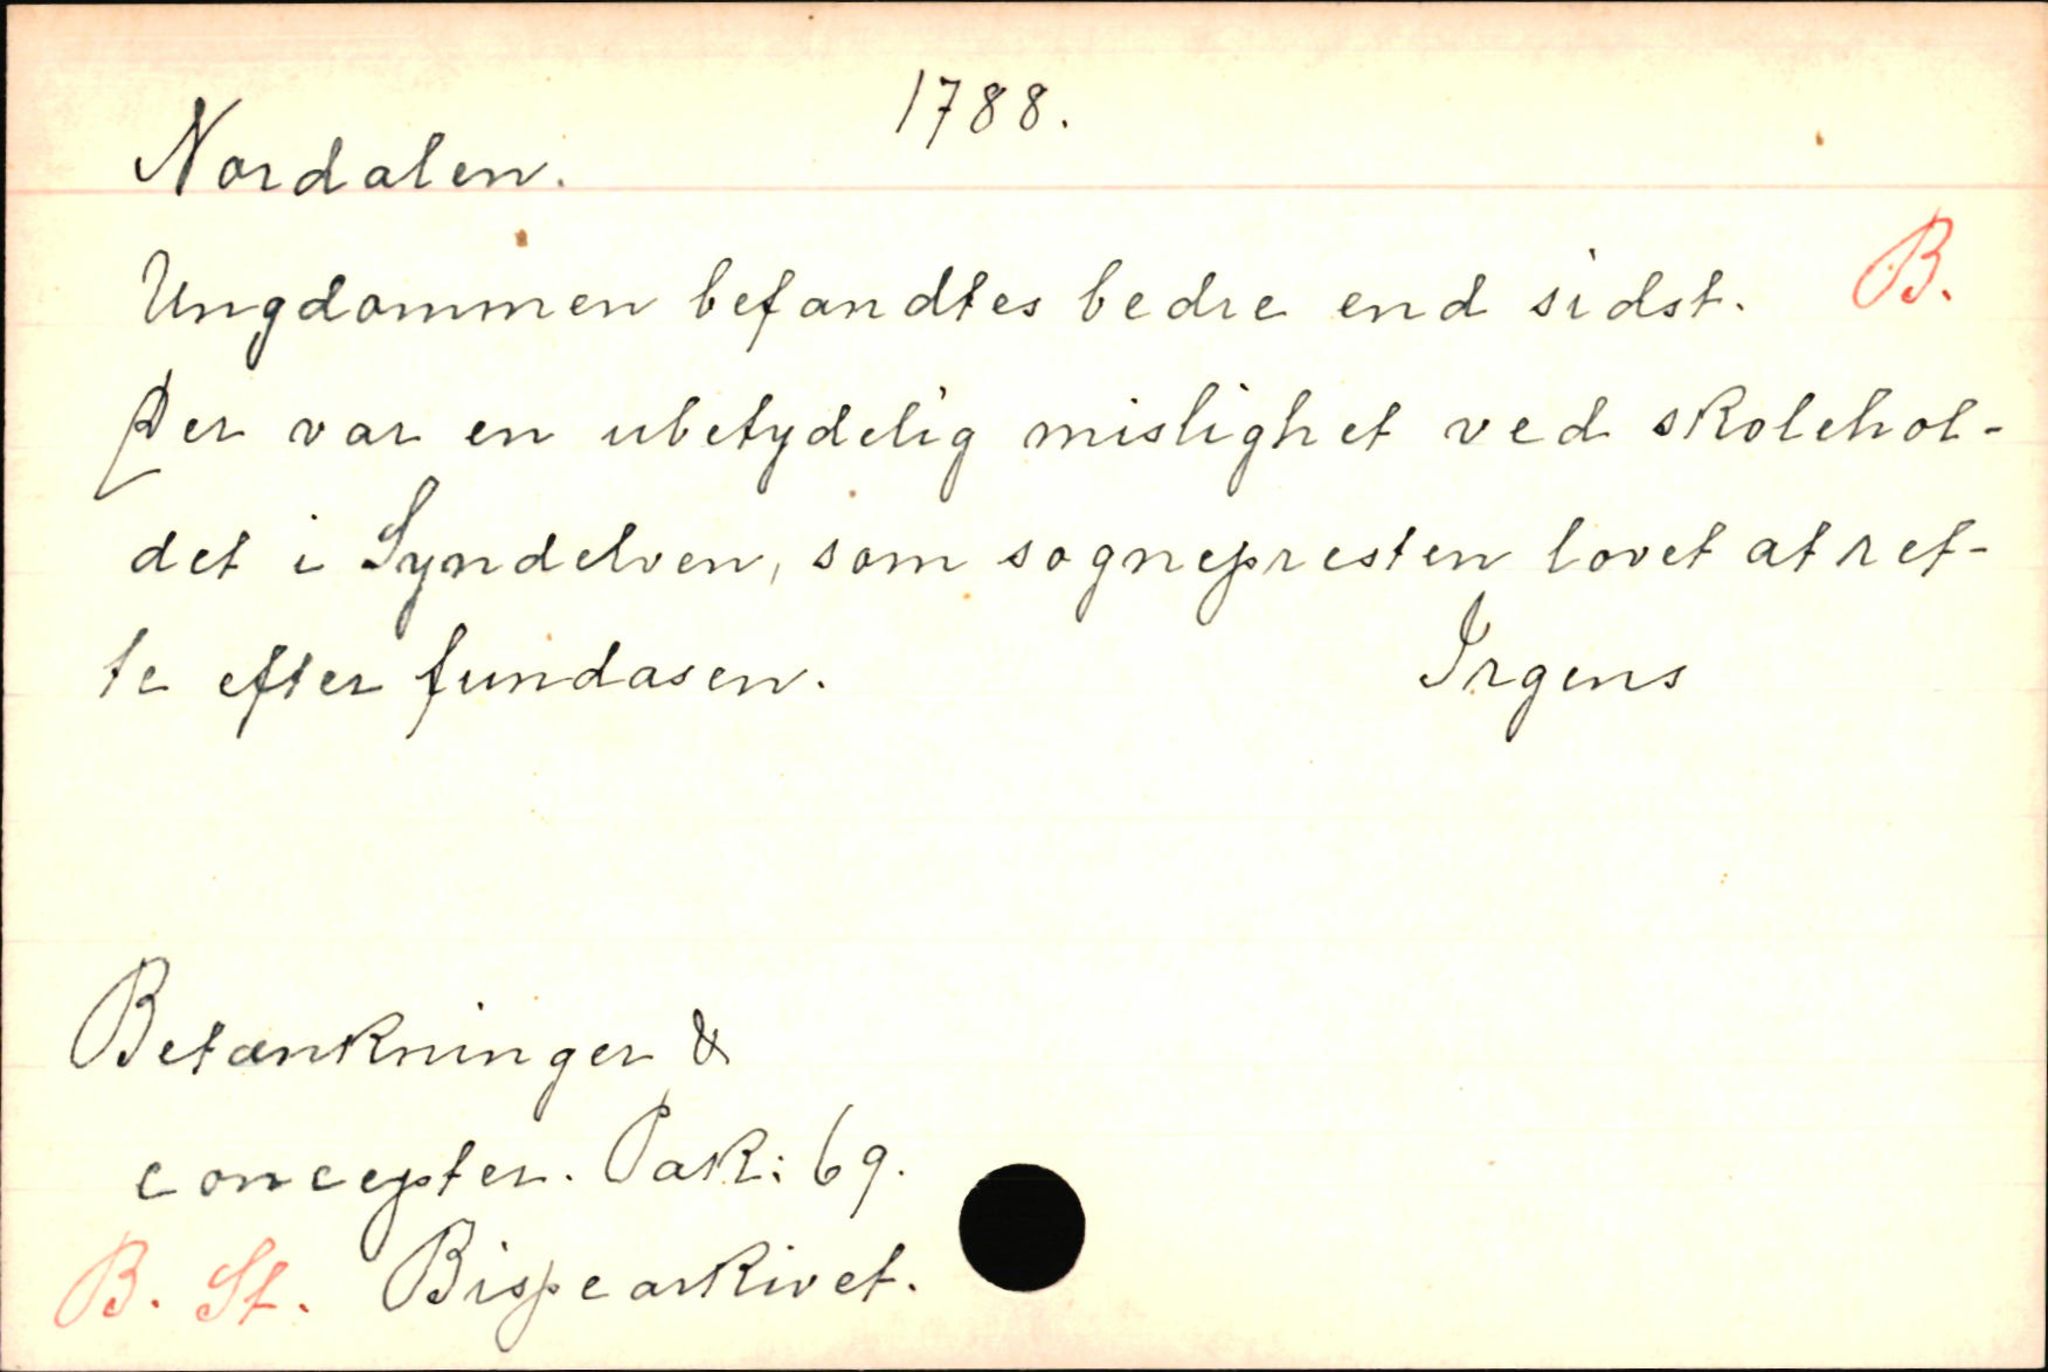 1788.
Nordalen.
Ungdommen befandtes bedre end sidst. B.
Der var en ubetydelig mislighet ved skolehol-
det i Syndelven, som sognepresten lovet at ret-
te efter fundasen. Irgens
Betænkninger &
concepter. Pak: 69.
B. St. Bispearkivet.